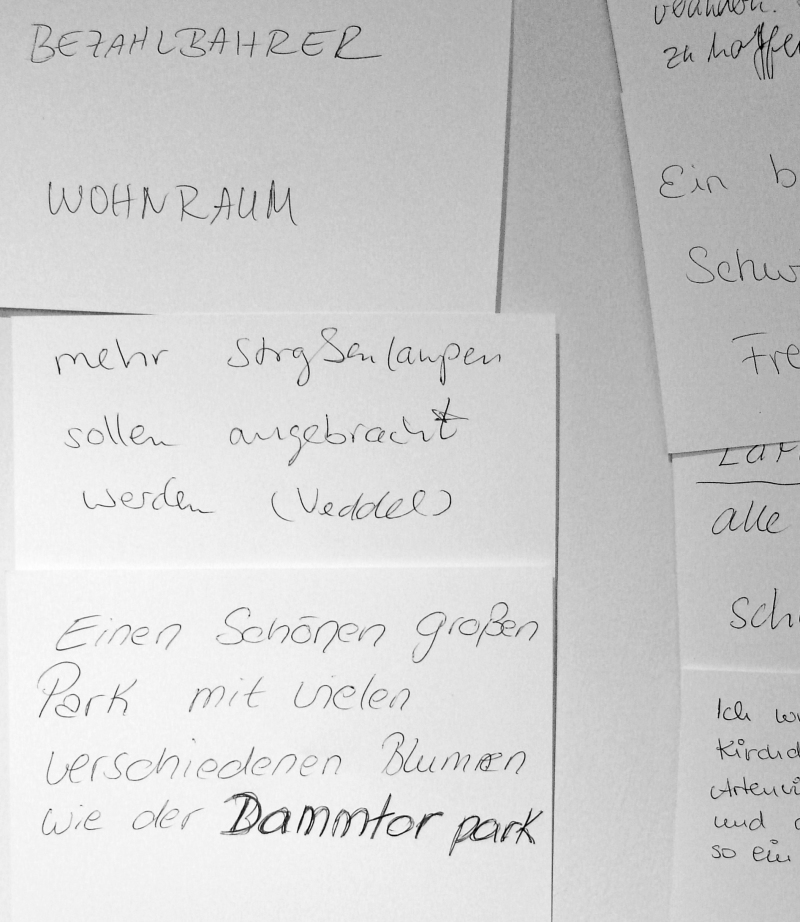 BEZAHLBAHRER
WOHNRAUM
mehr Straßenlaupen
sollen angebracht
werden (Veddel)
Einen Schönen großen
Park mit vielen
verschiedenen Blumen
wie der Dammtor park
zu hoffen
Ein b
Schw
Fre
alle
Sch
Ich
Kirchd
Artenvi
und
so ein